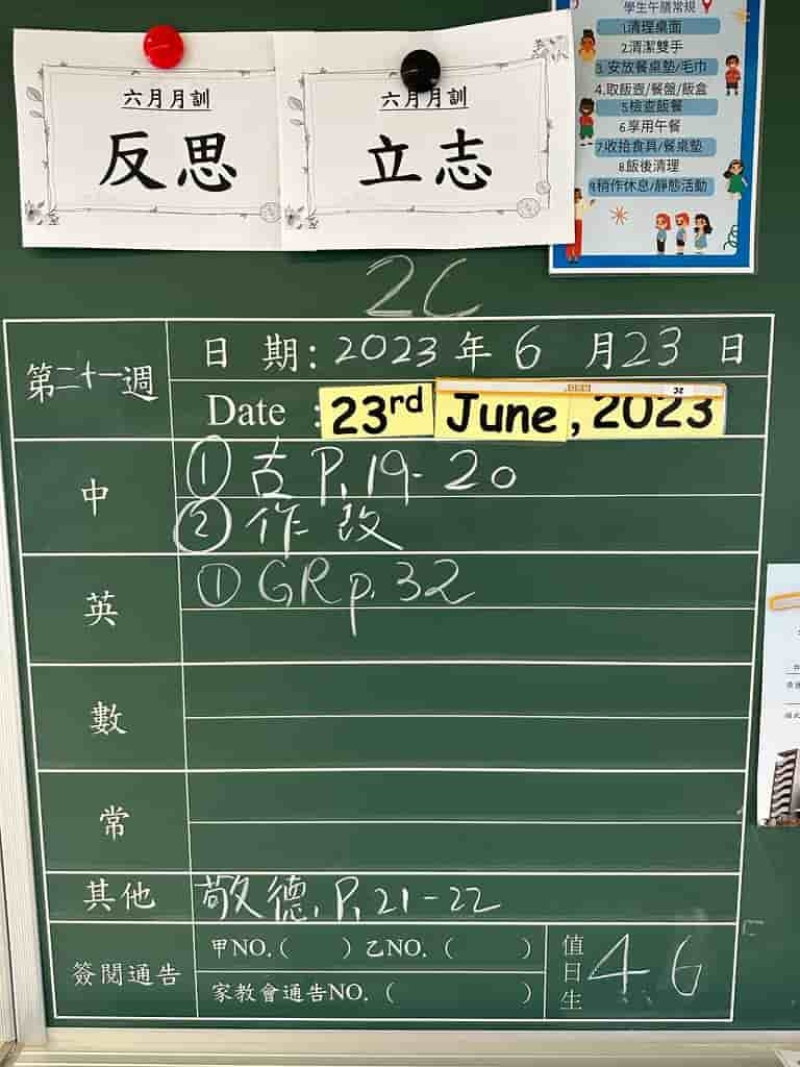 六月月訓
反思
六月月訓
立志
學生午膳常規
1.清理桌面
2.清潔雙手
3.安放餐桌墊/毛巾
4.取飯壺/餐盤/飯盒
5.檢查飯餐
6.享用午餐
7.收拾食具/餐桌墊
8.飯後清理
9.稍作休息/靜態活動
2C
第二十一週
日 期：2023 年 6 月 23 日
Date : 23rd June, 2023
中
① 古 P.19-20
② 作 改
英
① GR p.32
數
常
其他
敬德. P.21-22
簽閱通告
甲NO.( ) 乙NO. ( )
家教會通告NO. ( )
值日生
4. 6